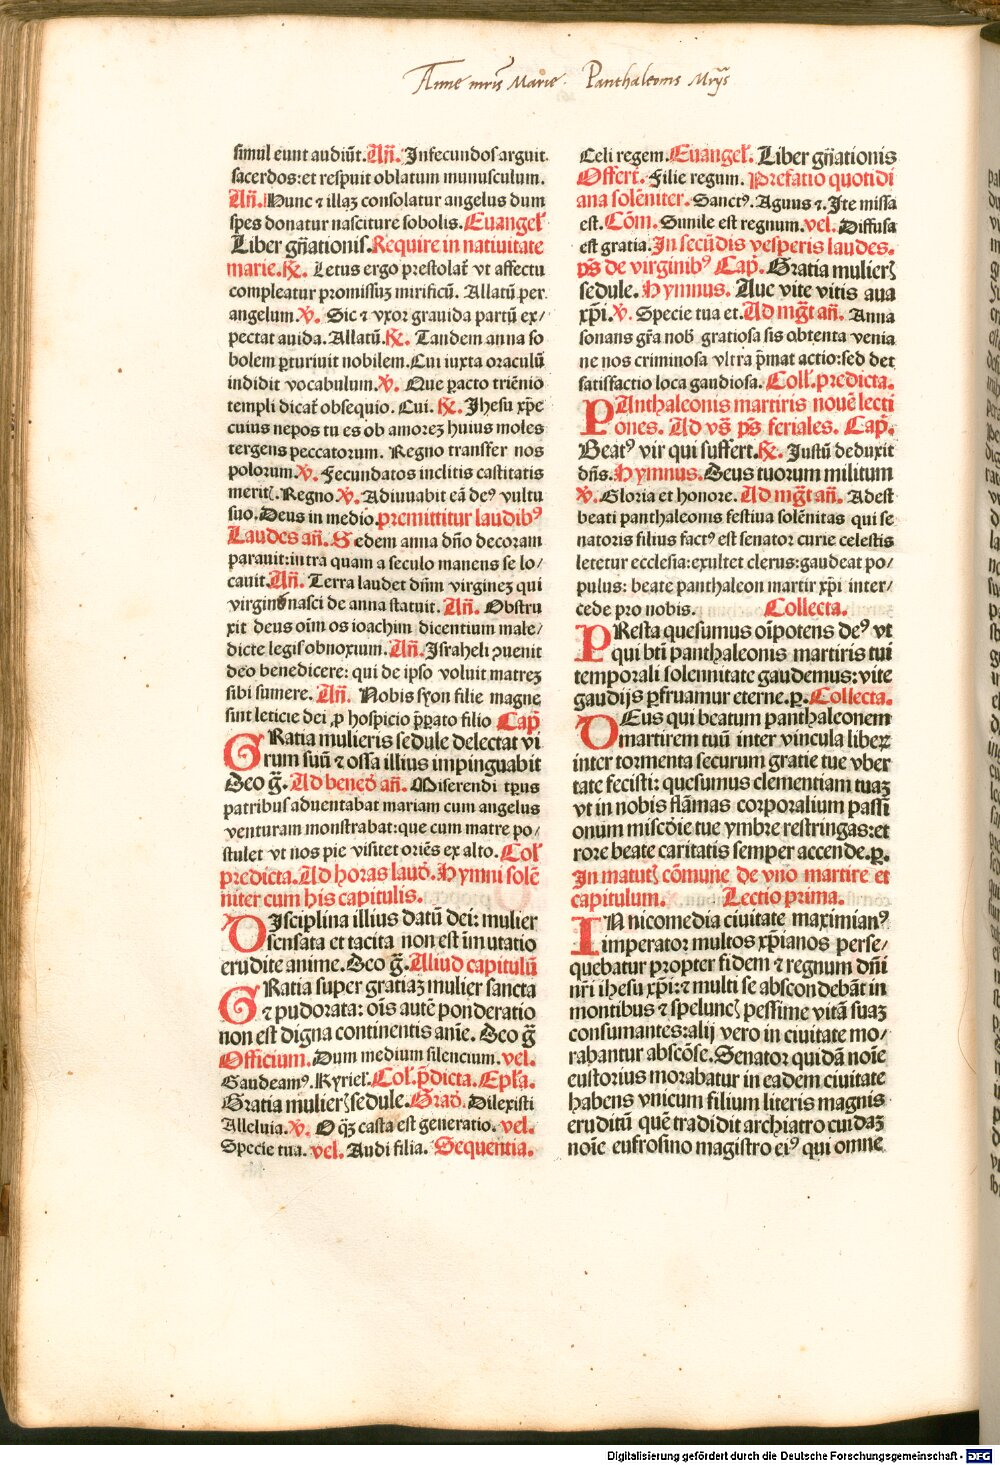 Anne mr̃is Marie. Panthaleonis Mr̃ys
simul eunt audiũt. Añ. Infecundos arguit
sacerdos: et respuit oblatum munusculum.
Añ. Hunc ⁊ illaꝫ consolatur angelus dum
spes donatur nasciture sobolis. Euangel̃
Liber gñationis. Require in natiuitate
marie. ℟. Letus ergo prestolat̃ vt affectu
compleatur promissuꝫ mirificũ. Allatũ per
angelum. ℣. Sic ⁊ vxor grauida partũ ex/
pectat auida. Allatũ. ℟. Tandem anna so
bolem ꝑturiuit nobilem. Cui iuxta oraculũ
indidit vocabulum. ℣. Que ꝑacto triẽnio
templi dicat̃ obsequio. Cui. ℟. Jhesu xp̃e
cuius nepos tu es ob amoreꝫ huius moles
tergens peccatorum. Regno transfer nos
polorum. ℣. Fecundatos inclitis castitatis
meritꝭ. Regno. ℣. Adiuuabit eã deꝰ vultu
suo. Deus in medio. premittitur laudibꝰ
Laudes añ. Sedem anna dño decoram
parauit: intra quam a seculo manens se lo/
cauit. Añ. Terra laudet dñm virgineꝫ qui
virginẽ nasci de anna statuit. Añ. Obstru
xit deus oĩm os ioachim dicentium male/
dicte legis obnoxium. Añ. Israheli ꝯuenit
deo benedicere: qui de ipso voluit matreꝫ
sibi sumere. Añ. Nobis syon filie magne
sint leticie dei ꝓ hospicio p̃parato filio Cap̃
GRatia mulieris sedule delectat vi
rum suũ ⁊ ossa illius impinguabit
Deo g̃. Ad bened̃ añ. Miserendi tp̃us
patribus aduentabat mariam cum angelus
venturam monstrabat: que cum matre po/
stulet vt nos pie visitet oriẽs ex alto. Col̃
predicta. Ad horas laud̃. Hymni solẽ
niter cum his capitulis.
DIsciplina illius datũ dei: mulier
sensata et tacita non est ĩmutatio
erudite anime. Deo g̃. Aliud capitulũ
GRatia super gratiaꝫ mulier sancta
⁊ pudorata: oĩs autẽ ponderatio
non est digna continentis anĩe. Deo g̃
Officium. Dum medium silencium. vel.
Gaudeamꝰ. Kyriel̃. Col̃. p̃dicta. Epl̃a.
Gratia mulierꝭ sedule. Grad̃. Dilexisti
Alleluia. ℣. O qꝫ casta est generatio. vel.
Specie tua. vel. Audi filia. Sequentia.
Celi regem. Euangel̃. Liber gñationis
Offert̃. Filie regum. Prefatio quotidi
ana solẽniter. Sanctꝰ. Agnus ⁊. Ite missa
est. Cõm. Simile est regnum. vel. Diffusa
est gratia. In secũdis vesperis laudes.
p̃s de virginibꝰ Cap̃. Gratia mulierꝭ
sedule. Hymnus. Aue vite vitis aua
xp̃i. ℣. Specie tua et. Ad mg̃t añ. Anna
sonans gr̃a nob̃ gratiosa sis obtenta venia
ne nos criminosa vltra p̃mat actio: sed det
satisfactio loca gaudiosa. Coll̃. predicta.
PAnthaleonis martiris nouẽ lecti
ones. Ad vs̃ p̃s feriales. Cap̃.
Beatꝰ vir qui suffert. ℟. Iustũ deduxit
dñs. Hymnus. Deus tuorum militum
℣. Gloria et honore. Ad mg̃t añ. Adest
beati panthaleonis festiua solẽnitas qui se
natoris filius factꝰ est senator curie celestis
letetur ecclesia: exultet clerus: gaudeat po/
pulus: beate panthaleon martir xp̃i inter/
cede pro nobis. Collecta.
PResta quesumus oĩpotens deꝰ vt
qui bt̃i panthaleonis martiris tui
temporali solennitate gaudemus: vite
gaudijs ꝑfruamur eterne. ꝑ. Collecta.
DEus qui beatum panthaleonem
martirem tuũ inter vincula liberꝫ
inter tormenta securum gratie tue vber
tate fecisti: quesumus clementiam tuaꝫ
vt in nobis flãmas corporalium passi
onum miscd̃ie tue ymbre restringas: et
rore beate caritatis semper accende. ꝑ.
In matutꝭ cõmune de vno martire et
capitulum. Lectio prima.
IN nicomedia ciuitate maximianꝰ
imperator multos xp̃ianos perse/
quebatur propter fidem ⁊ regnum dñi
nr̃i ihesu xp̃i: ⁊ multi se abscondebãt in
montibus ⁊ speluncꝭ pessime vitã suaꝫ
consumantes: alij vero in ciuitate mo/
rabantur abscõse. Senator quidã noĩe
eustorius morabatur in eadem ciuitate
habens vnicum filium literis magnis
eruditũ quẽ tradidit archiatro cuidaꝫ
noĩe eufrosino magistro eiꝰ qui omne
Digitalisierung gefördert durch die Deutsche Forschungsgemeinschaft - DFG